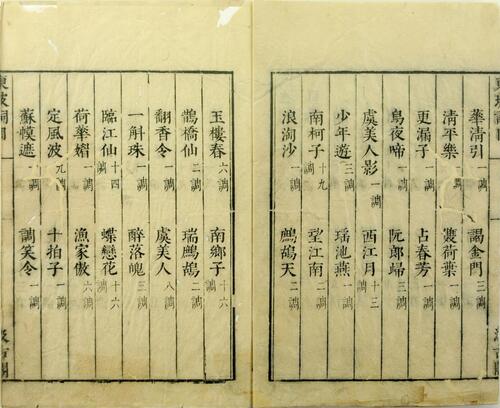 華清引 一調 謁金門 三調
清平樂 一調 雙荷葉 一調
更漏子 一調 占春芳 一調
烏夜啼 一調 阮郎歸 三調
虞美人影 一調 西江月 十三調
少年遊 三調 瑤池燕 一調
南柯子 十九調 望江南 二調
浪淘沙 一調 鷓鴣天 二調
玉樓春 六調 南鄉子 十六調
鵲橋仙 二調 瑞鷓鴣 二調
翻香令 一調 虞美人 八調
一斛珠 一調 醉落魄 三調
臨江仙 十四調 蝶戀花 十六調
荷華媚 一調 漁家傲 六調
定風波 九調 十拍子 一調
蘇幙遮 一調 調笑令 一調